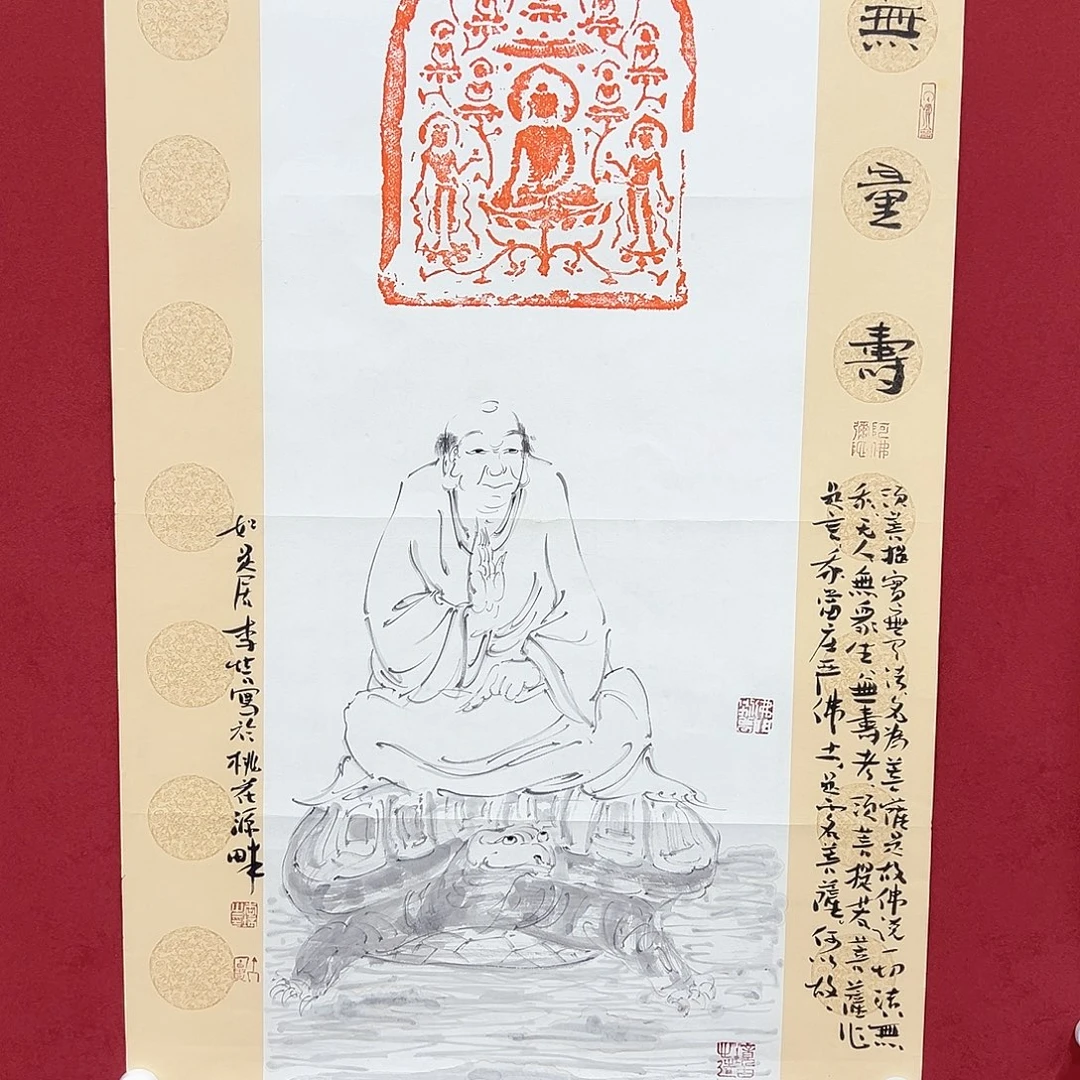 無量壽
阿彌
陀佛
須菩提實無有法名為菩薩是故佛說一切法無
我无人無眾生無壽者須菩提若菩薩作
是言我當庄严佛土是不名菩薩何以故
如是居李 写於桃花源畔